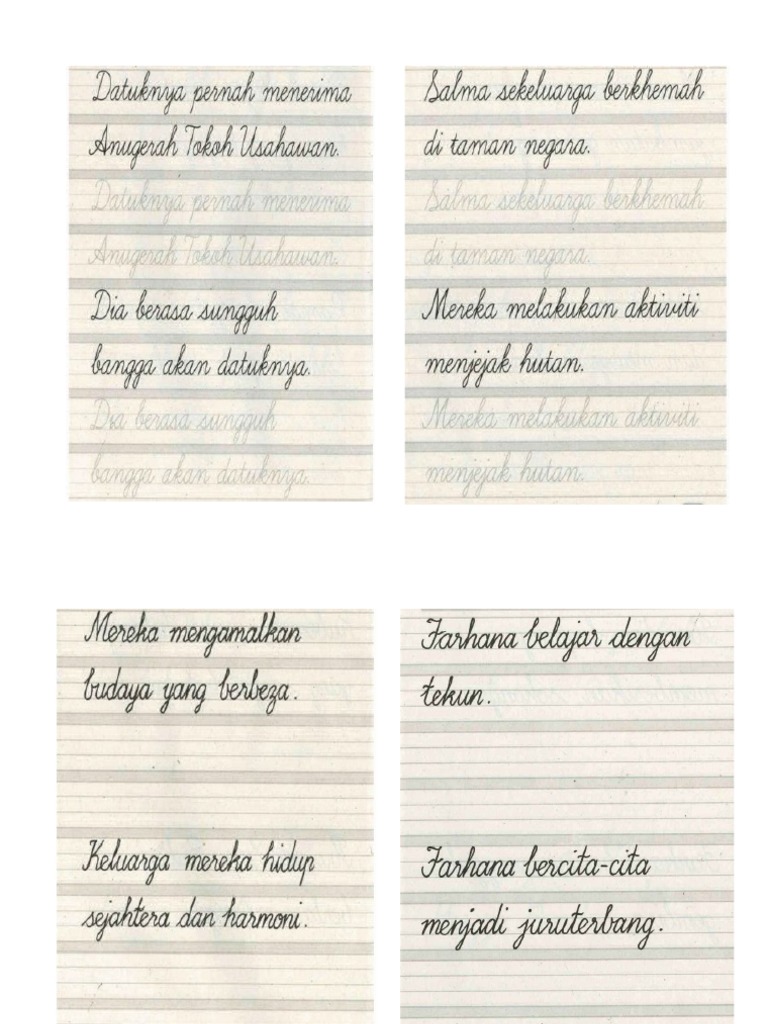 Datuknya pernah menerima
Anugerah Tokoh Usahawan.
Datuknya pernah menerima
Anugerah Tokoh Usahawan.
Dia berasa sungguh
bangga akan datuknya.
Dia berasa sungguh
bangga akan datuknya.
Salma sekeluarga berkhemah
di taman negara.
Salma sekeluarga berkhemah
di taman negara.
Mereka melakukan aktiviti
menjejak hutan.
Mereka melakukan aktiviti
menjejak hutan.
Mereka mengamalkan
budaya yang berbeza.
Keluarga mereka hidup
sejahtera dan harmoni.
Farhana belajar dengan
tekun.
Farhana bercita-cita
menjadi juruterbang.